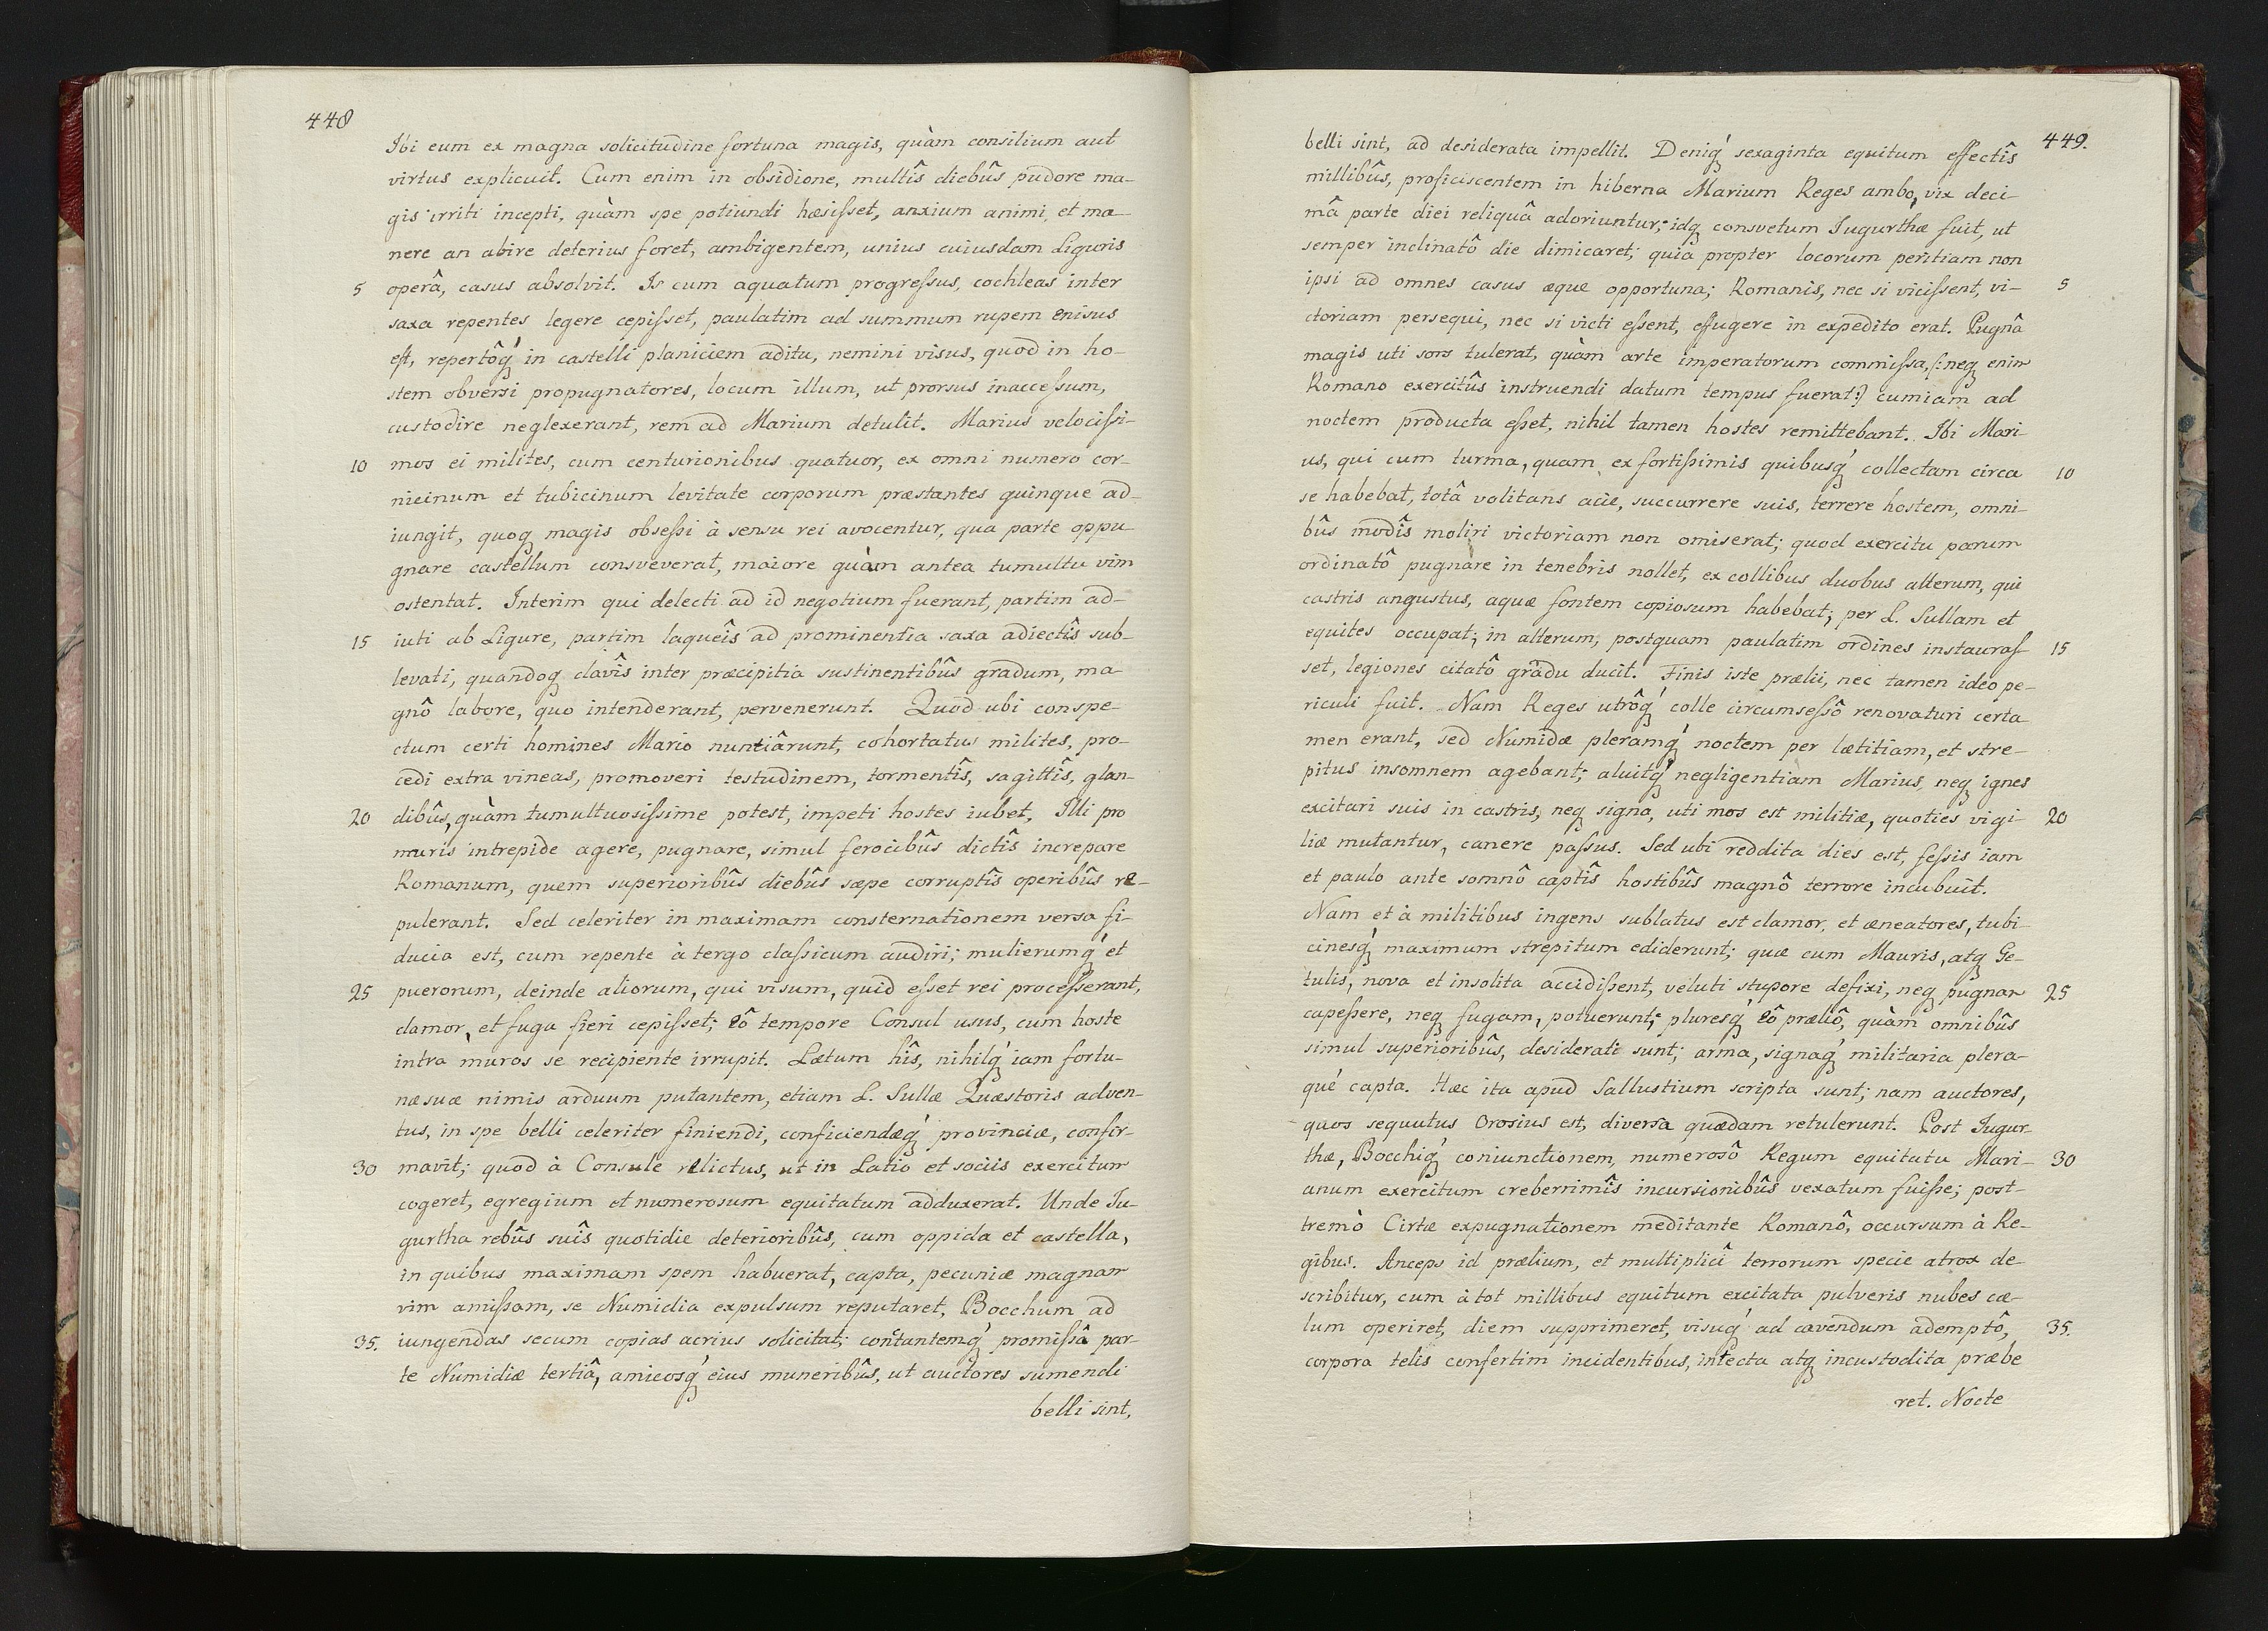 448
Ibi eum ex magna solicitudine fortuna magis, quàm consilium aut
virtus explicuit. Cum enim in obsidione, multîs diebûs pudore ma-
gis irriti incepti, quàm spe potiundi hæsisset, anxium animi, et ma-
nere an abire deterius foret, ambigentem, unius cuiusdam Liguris
5 operâ, casus absolvit. Is cum aquatum progressus, cochleas inter
saxa repentes legere cepisset, paulatim ad summum rupem enisus
est, repertôq́ in castelli planiciem aditu, nemini visus, quod in ho-
stem obversi propugnatores, locum illum, ut prorsus inaccessum,
custodire neglexerant, rem ad Marium detulit. Marius velocissi-
10 mos ei milites, cum centurionibus quatuor, ex omni numero cor-
nicinum et tubicinum levitate corporum præstantes quinque ad-
iungit, quoq magis obsessi à sensu rei avocentur, qua parte oppu-
gnare castellum consveverat, maiore quàm antea tumultu vim
ostentat. Interim qui delecti ad id negotium fuerant, partim ad-
15 iuti ab Ligure, partim laqueîs ad prominentia saxa adiectîs sub-
levati, quandoq clavîs inter præcipitia sustinentibûs gradum, ma-
gnô labore, quo intenderant, pervenerunt. Quod ubi conspe-
ctum certi homines Mario nuntiârunt, cohortatus milites, pro-
cedi extra vineas, promoveri testudinem, tormentîs, sagittîs, glan-
20 dibûs, quàm tumultuosissime potest, impeti hostes iubet, Illi pro
muris intrepide agere, pugnare, simul ferocibûs dictîs increpare
Romanum, quem superioribûs diebûs sæpe corruptîs operibûs re-
pulerant. Sed celeriter in maximam consternationem versa fi-
ducia est, cum repente à tergo classicum audiri; mulierumq́ et
25 puerorum, deinde aliorum, qui visum, quid esset rei processerant,
clamor, et fuga fieri cepisset; eô tempore Consul usus, cum hoste
intra muros se recipiente irrupit. Lætum hîs, nihilq́ iam fortu-
næ suæ nimis arduum putantem, etiam L. Sullæ Quæstoris adven-
tus, in spe belli celeriter finiendi, conficiendæq́ provinciæ, confir-
30 mavit; quod à Consule relictus, ut in Latio et sociis exercitum
cogeret, egregium et numerosum equitatum adduxerat. Unde Iu-
gurtha rebûs suîs quotidie deterioribûs, cum oppida et castella,
in quibus maximam spem habuerat, capta, pecuniæ magnam
vim amissam, se Numidia expulsum reputaret, Bocchum ad
35. iungendas secum copias acrius solicitat; contantemq́ promissâ par-
te Numidiæ tertiâ, amicosq́ eius muneribûs, ut auctores sumendi
belli sint,
449.
belli sint, ad desiderata impellit. Deniq́ sexaginta equitum effectîs
millibûs, proficiscentem in hiberna Marium Reges ambo, vix deci-
mâ parte diei reliquâ adoriuntur; idq consvetum Iugurthæ fuit, ut
semper inclinatô die dimicaret; quia propter locorum peritiam non
ipsi ad omnes casus æque opportuna; Romanis, nec si vicissent, vi- 5
ctoriam persequi, nec si victi essent, effugere in expedito erat. Pugnâ
magis uti sors tulerat, quàm arte imperatorum commissa, (:neq enim
Romano exercitûs instruendi datum tempus fuerat:) cumiam ad
noctem producta esset, nihil tamen hostes remittebant. Ibi Mari-
us, qui cum turma, quam ex fortissimis quibusq́ collectam circa 10
se habebat, totâ volitans acie, succurrere suis, terrere hostem, omni-
bûs modîs moliri victoriam non omiserat; quod exercitu parum
ordinatô pugnare in tenebris nollet, ex collibus duobus alterum, qui
castris angustus, aquæ fontem copiosum habebat; per L. Sullam et
equites occupat; in alterum, postquam paulatim ordines instauras- 15
set, legiones citatô gradu ducit. Finis iste prælii, nec tamen ideo pe-
riculi fuit. Nam Reges utrôq́ colle circumsessô renovaturi certa-
men erant, sed Numidæ pleramq́ noctem per lætitiam, et stre-
pitus insomnem agebant; aluitq́ negligentiam Marius, neq ignes
excitari suis in castris, neq signa, uti mos est militiæ, quoties vigi- 20
liæ mutantur, canere passus. Sed ubi reddita dies est, fessis iam
et paulo ante somnô captîs hostibûs magnô terrore incubuit.
Nam et à militibus ingens sublatus est clamor, et æneatores, tubi-
cinesq́ maximum strepitum ediderunt; quæ cum Mauris, atq Ge-
tulis, nova et insolita accidissent, veluti stupore defixi, neq pugnam 25
capessere, neq fugam, potuerunt; pluresq́ eô præliô, quàm omnibûs
simul superioribûs, desiderati sunt; arma, signaq́ militaria plera-
qué capta. Hæc ita apud Sallustium scripta sunt; nam auctores,
quos sequutus Orosius est, diversa quædam retulerunt. Post Iugur-
thæ, Bocchiq́ coniunctionem, numerosô Regum equitatu Mari- 30
anum exercitum creberrimîs incursionibûs vexatum fuisse; post-
tremò Cirtæ expugnationem meditante Romanô, occursum à Re-
gibus. Anceps id prælium, et multiplicî terrorum specie atrox de-
scribitur, cum à tot millibus equitum excitata pulveris nubes cæ-
lum operiret, diem supprimeret, visuq́ ad cavendum ademptô, 35.
corpora telis confertim incidentibus, intecta atq incustodita præbe
ret. Nocte